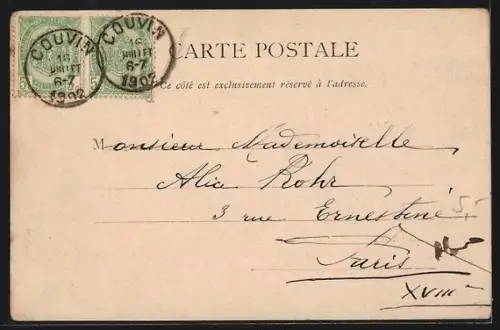 COUVIN
16
JUILLET
6-7
1902
COUVIN
16
JUILLET
6-7
1902
CARTE POSTALE
Ce côté est exclusivement réservé à l'adresse.
Monsieur Mademoiselle
Alia Rohr
3 rue Ernestine
5,-
Paris
XVIII